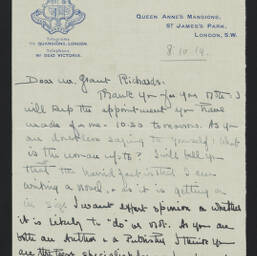 Telegrams
"QUANSIONS, LONDON.
Telephone
Nº 5610 VICTORIA.
QUEEN ANNE'S MANSIONS,
ST JAMES'S PARK,
LONDON, S.W.
8.10.19.
Dear Mr. Grant Richards.
Thank you for your note. I
will keep the appointment you have
made for me - 10.30 tomorrow. As you
are doubtless saying to yourself: what
is this woman up to? I will tell you
that the
writing a novel. As it is getting on
in size I want expert opinion on whether
it is likely to "do" or not. As you are
both an Author & a Publisher I think you
are the